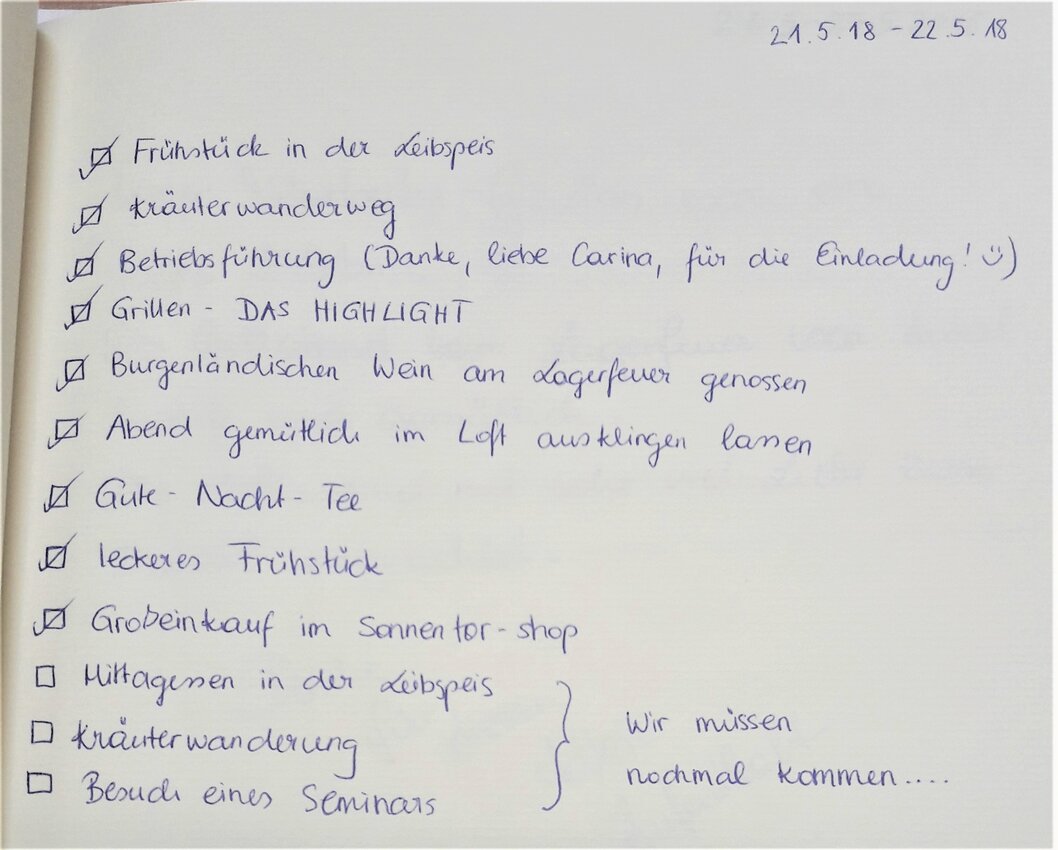 21.5.18 - 22.5.18
☑ Frühstück in der Leibspeis
☑ Kräuterwanderweg
☑ Betriebsführung (Danke, liebe Carina, für die Einladung! ☺)
☑ Grillen - DAS HIGHLIGHT
☑ Burgenländischen Wein am Lagerfeuer genossen
☑ Abend gemütlich im Loft ausklingen lassen
☑ Gute-Nacht-Tee
☑ leckeres Frühstück
☑ Großeinkauf im Sonnentor-shop
☐ Mittagessen in der Leibspeis
☐ Kräuterwanderung
☐ Besuch eines Seminars
Wir müssen
nochmal kommen....